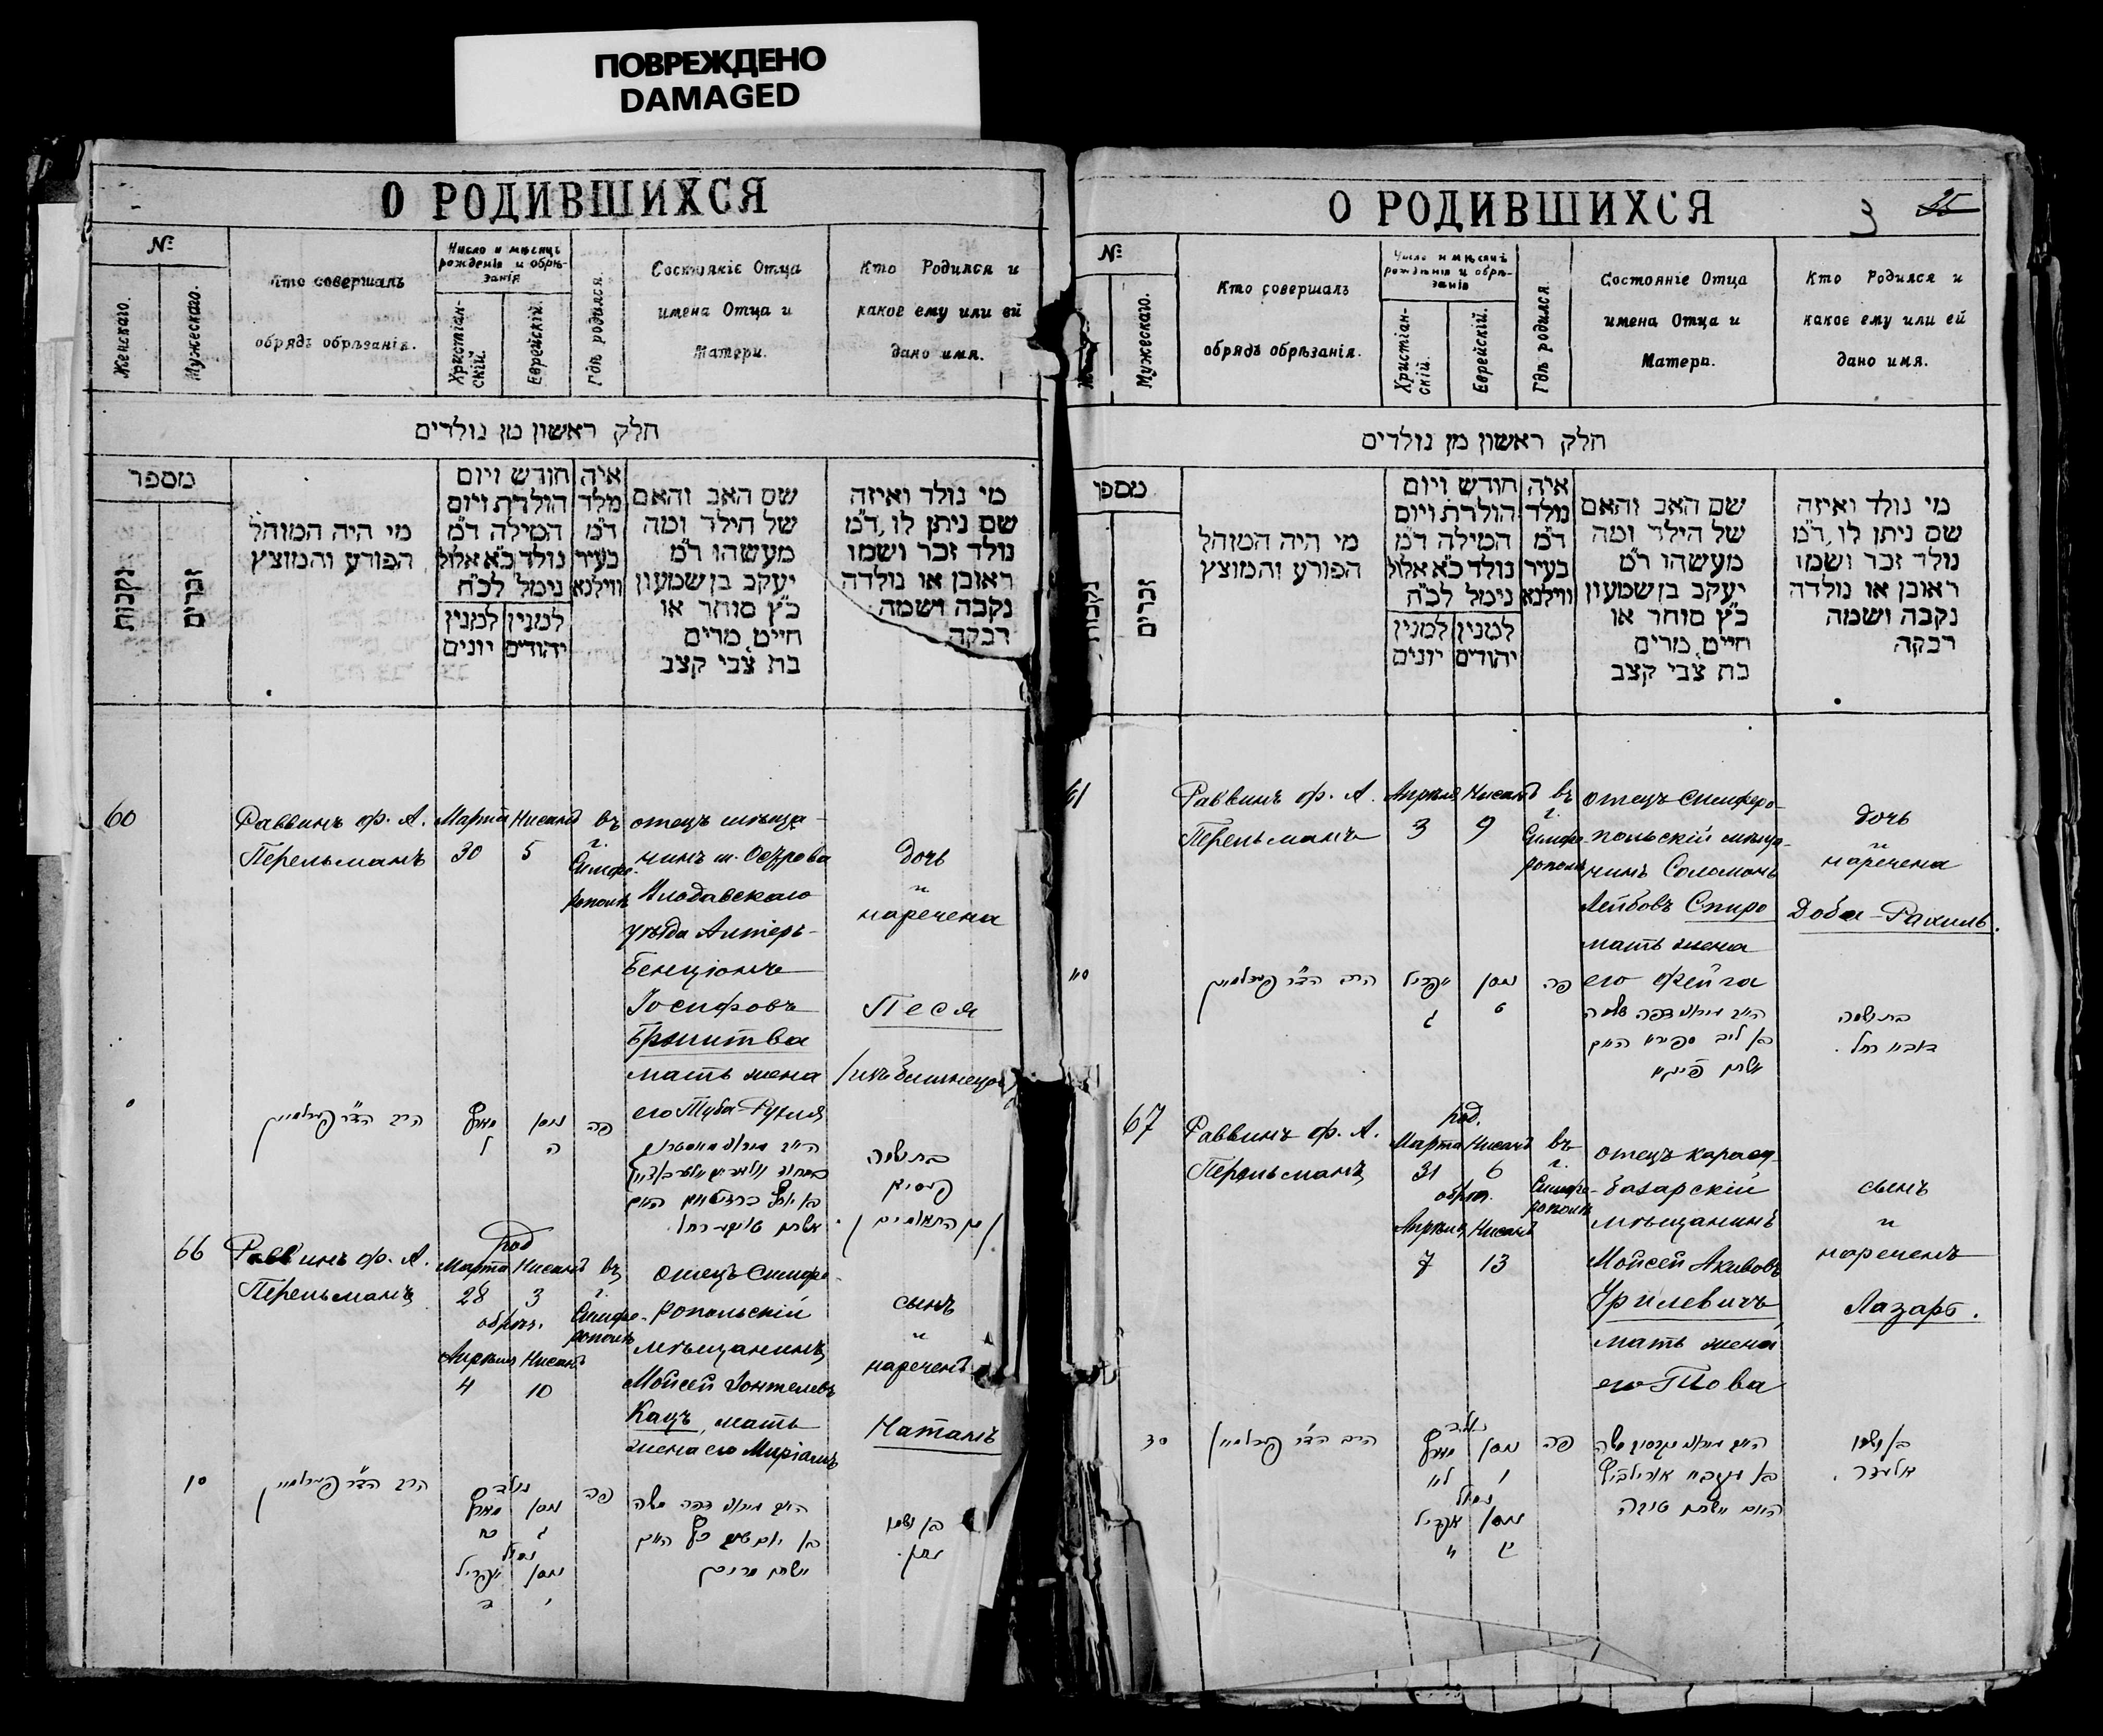 ПОВРЕЖДЕНО
DAMAGED
О РОДИВШИХСЯ
№
Женскаго.
Мужескаго.
Кто совершалъ
обрядъ обрѣзанія.
Число и мѣсяцъ
рожденія и обрѣ-
занія
Христіан-
скій.
Еврейскій.
Гдѣ родился.
Состояніе Отца
имена Отца и
Матери.
Кто Родился и
какое ему или ей
дано имя.
חלק ראשון מן נולדים
מספר
נקבות
זכרים
מי היה המוהל
הפורע והמוצץ
חודש ויום
הולדת ויום
המילה ד״מ
נולד כ״א אלול
נימל לכ״ח
למנין יהודים
למנין יונים
איה
מלד
ד״מ
בעיר
ווילנא
שם האב והאם
של הילד ומה
מעשהו ד״מ
יעקב בן שמעון
כ״ץ סוחר או
חייט, מרים
בת צבי קצב
מי נולד ואיזה
שם ניתן לו, ד״מ
נולד זכר ושמו
ראובן או נולדה
נקבה ושמה
רבקה
60
Раввинъ ф. А.
Перельманъ
Марта
30
Нисанъ
5
въ
г.
Симфе-
рополѣ
отецъ мѣща-
нинъ м. Острова
Влодавскаго
уѣзда Алтеръ-
Бенціонъ
Іосифовъ
Бриштва
мать жена
его Туба-Рухля
дочь
и
наречена
Песя
/изъ близнецовъ/
הרב הד״ר פערלמאן
מארץ
ל
ניסן
ה
פה
בת ושמה
פעסיא
/ מן התאומים /
66
Раввинъ ф. А.
Перельманъ
род
Марта
28
Нисанъ
3
обрѣз.
Апрѣля
4
Нисанъ
10
въ
г.
Симфе-
рополѣ
отецъ Симфе-
ропольскій
мѣщанинъ
Мойсей Іонтелевъ
Кацъ, мать
жена его Миріамъ
сынъ
и
нареченъ
Натанъ
10
הרב הד״ר פערלמאן
נולד
מארץ
כח
ניסן
ג
נמול
אפריל
ד
ניסן
י
פה
משה
בן יאנטעוו כץ האם
אשתו מרים
בן ושמו
נתן.
О РОДИВШИХСЯ
3
35
№
Мужескаго.
Кто совершалъ
обрядъ обрѣзанія.
Число и мѣсяцъ
рожденія и обрѣ-
занія
Христіан-
скій.
Еврейскій.
Гдѣ родился.
Состояніе Отца
имена Отца и
Матери.
Кто Родился и
какое ему или ей
дано имя.
חלק ראשון מן נולדים
מספר
נקבות
זכרים
מי היה המוהל
הפורע והמוצץ
חודש ויום
הולדת ויום
המילה ד״מ
נולד כ״א אלול
נימל לכ״ח
למנין יהודים
למנין יונים
איה
מלד
ד״מ
בעיר
ווילנא
שם האב והאם
של הילד ומה
מעשהו ד״מ
יעקב בן שמעון
כ״ץ סוחר או
חייט, מרים
בת צבי קצב
מי נולד ואיזה
שם ניתן לו, ד״מ
נולד זכר ושמו
ראובן או נולדה
נקבה ושמה
רבקה
61
Раввинъ ф. А.
Перельманъ
Апрѣля
3
Нисанъ
9
въ
г.
Симфе-
рополѣ
отецъ Симферо-
польскій мѣща-
нинъ Соломонъ
Лейбовъ Спиро
мать жена
его Фейга
дочь
и
наречена
Доба-Рахиль.
הרב הד״ר פערלמאן
אפריל
ג
ניסן
ט
פה
שלמה
בן ליב ספירא האם
אשתו פייגא
בת ושמה
דאבא רחל.
67
Раввинъ ф. А.
Перельманъ
род.
Марта
31
Нисанъ
6
обрѣз.
Апрѣля
7
Нисанъ
13
въ
г.
Симфе-
рополѣ
отецъ карасу-
базарскій
мѣщанинъ
Мойсей Акивовъ
Урилевичъ
мать жена
его Това
сынъ
и
нареченъ
Лазарь.
30
הרב הד״ר פערלמאן
נולד
מארץ
לא
ניסן
ו
נמול
אפריל
ז
ניסן
יג
פה
משה
בן עקיבא אורילביץ
האם אשתו טובה
בן ושמו
אלעזר.